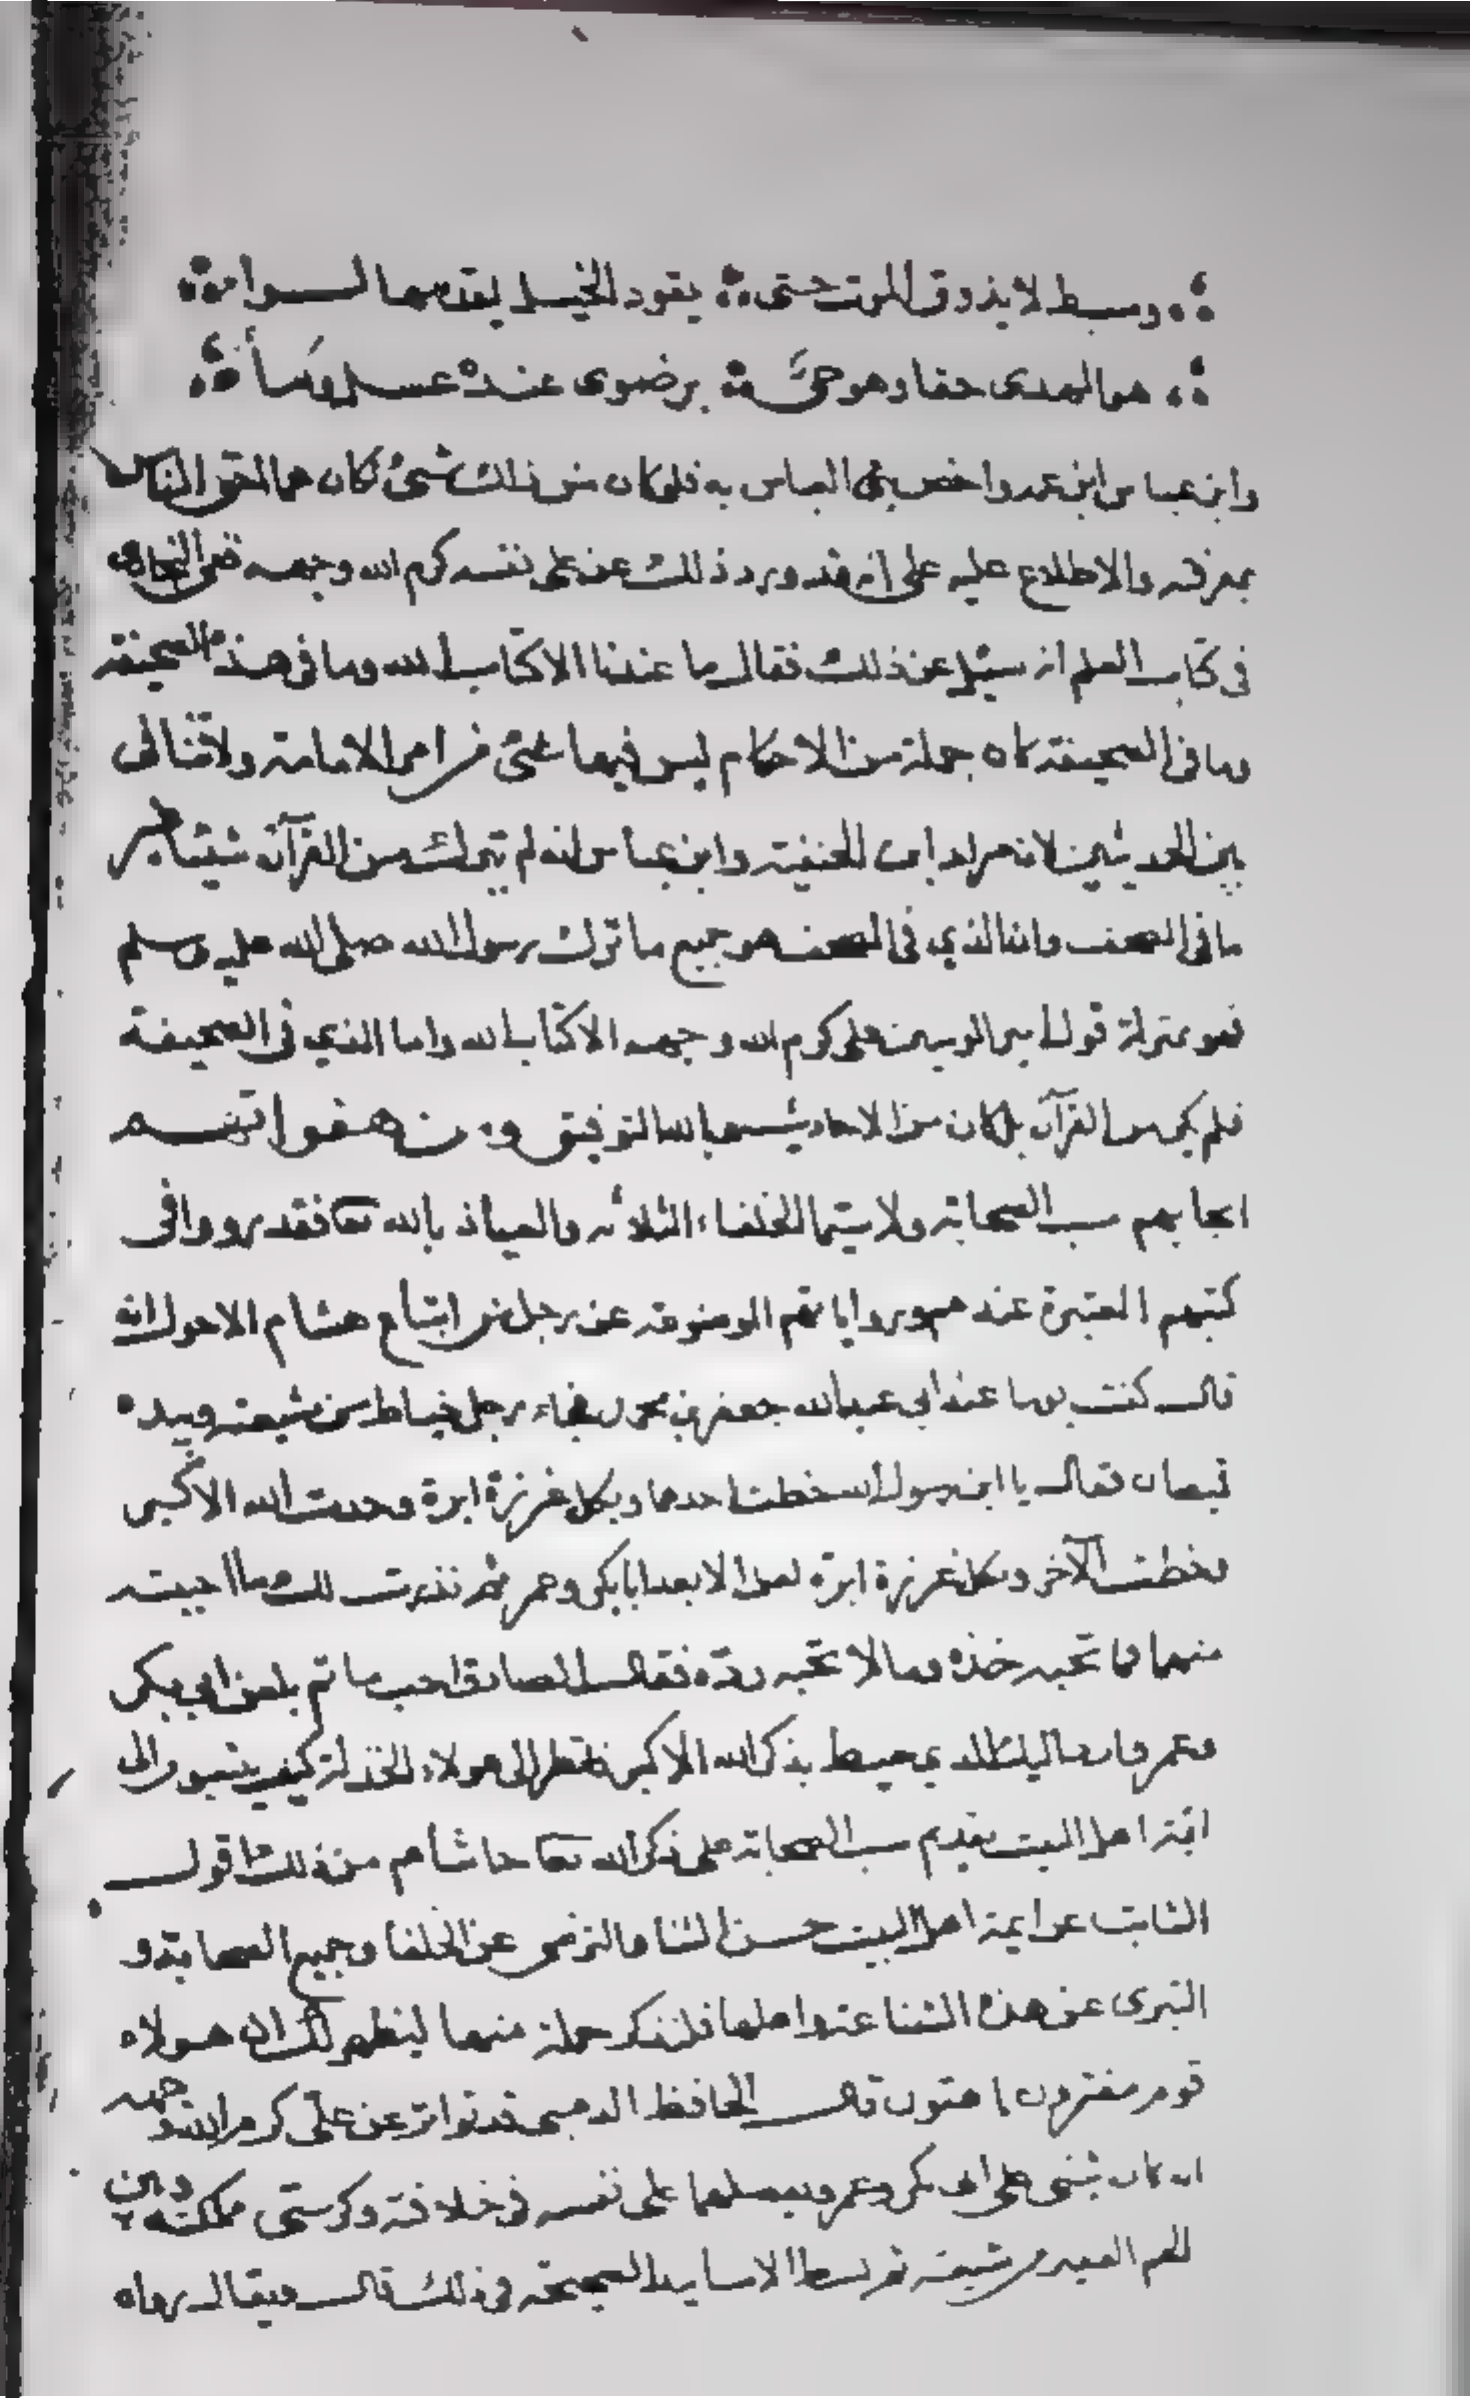 وسبط لا يذوق الموت حتى يقود الخيل يقدمها لسوا
هو المهدى حقا وهو حىّ برضوى عنده عسل
وابن عباس ابن عمه واخص بنى العباس به فلو كان من ذلك شئ لكان هما احق الناس
بمعرفته والاطلاع عليه على انه قد ورد ذلك عن على نفسه كرم الله وجهه ففى البخارى
فى كتاب العلم انه سئل عن ذلك فقال ما عندنا الا كتاب الله وما فى هذه الصحيفة
وما فى الصحيفة كان جملة من الاحكام ليس فيها شئ من امر الامامة ولا تنافى
بين الحديثين لان مراد ابن الحنفية وابن عباس انه لم يترك من القرآن شيئا غير
ما فى المصحف وان الذي فى المصحف هو جميع ما ترك رسول الله صلى الله عليه وسلم
فهو بمنزلة قول امير المومنين على كرم الله وجهه الا كتاب الله واما الذي فى الصحيفة
فلم يكن من القرآن بل كان من الاحاديث وبالله التوفيق ومن هفواتهم
ايجابهم سب الصحابة ولا سيما الخلفاء الثلاثه والعياذ بالله تعا فقد رووا فى
كتبهم المعتبرة عندهم ورواياتهم الموضوعة عن رجل من اتباع هشام الاحول انه
قال كنت يوما عند ابي عبد الله جعفر بن محمد فجاء رجل خياط من شيعته وبيده
قميصان فقال يا ابن رسول الله خطت احدهما وبكل غرزة ابرة وحدت الله الاكبر
وخطت الآخر وبكل غرزة ابرة لعن الابعد ابا بكر وعمر ثم نذرت لك ما احببته
منهما فما تحبه خذه وما لا تحبه ردّه فقال الصادق احب ما تم بلعن ابي بكر
وعمر واردد اليك الذي خيط بذكر الله الاكبر فانظر الى هولاء الكذبة كيف ينسبون الى
ائمة اهل البيت تقديم سب الصحابة على ذكر الله تعا حاشا هم من ذلك اقول
الثابت عن ايمة اهل البيت حسن الثنا والترضى عن الخلفا وجميع الصحابة و
التبرى عن هذه الشناعة واهلها فلنذكر جملة منها ليظهر لك ان هولاء
قوم مفترون باهتون قال الحافظ الذهبى قد تواتر عن على كرم الله وجهه
انه كان يثنى على ابى بكر وعمر ويفضلهما على نفسه فى خلافته وكرسى مملكته وبين
الجم الغفير من شيعته ثم بسط الاسانيد الصحيحة فى ذلك قال ويقال رواه